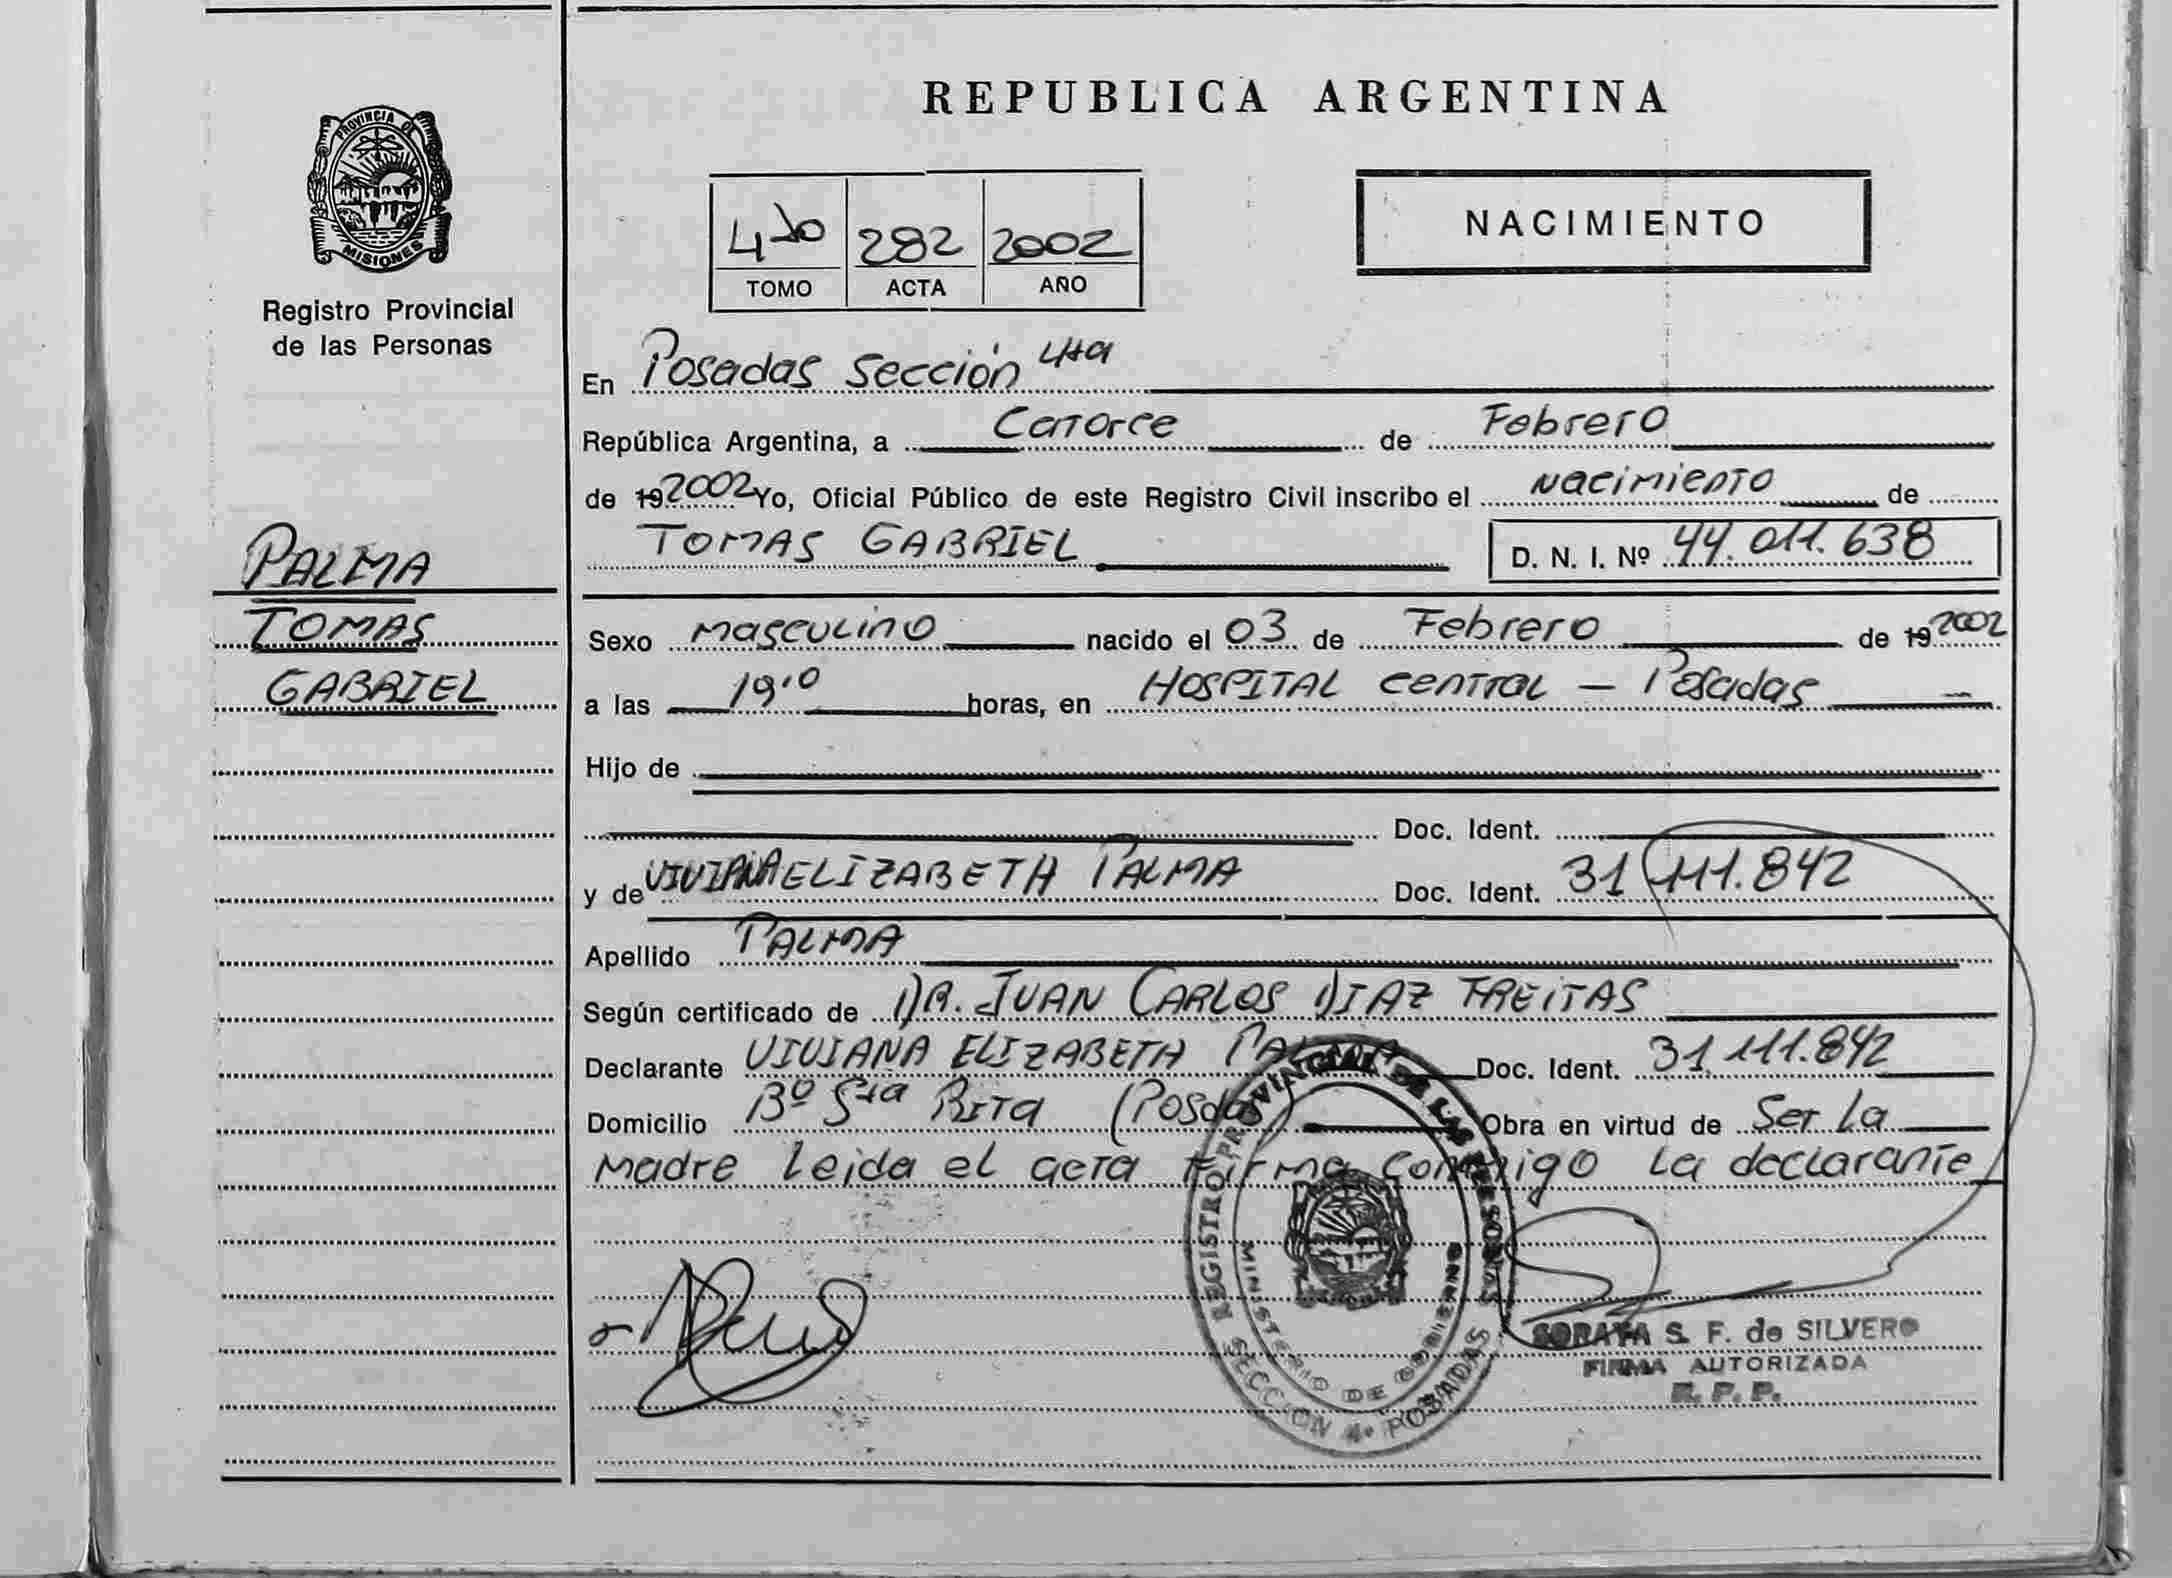 REPUBLICA ARGENTINA
PROVINCIA DE
MISIONES
Registro Provincial
de las Personas
4to 282 2002
TOMO ACTA AÑO
NACIMIENTO
En Posadas Sección 4ta
República Argentina, a Catorce de Febrero
de 19 2002 Yo, Oficial Público de este Registro Civil inscribo el Nacimiento de
TOMAS GABRIEL D. N. I. Nº 44.011.638
PALMA
TOMAS
GABRIEL
Sexo masculino nacido el 03 de Febrero de 19 2002
a las 19,10 horas, en HOSPITAL central – Posadas
Hijo de
Doc. Ident.
y de VIVIANA ELIZABETH PALMA Doc. Ident. 31.111.842
Apellido PALMA
Según certificado de DR. JUAN CARLOS DIAZ FREITAS
Declarante VIVIANA ELIZABETH PALMA Doc. Ident. 31.111.842
Domicilio Bº Sta Rita (Posdas) Obra en virtud de Ser La
Madre leida el acta Firma Conmigo La declarante
REGISTRO PROVINCIAL DE LAS PERSONAS
MINISTERIO DE GOBIERNO
SECCION 4º POSADAS
SORAYA S. F. de SILVERO
FIRMA AUTORIZADA
R. P. P.